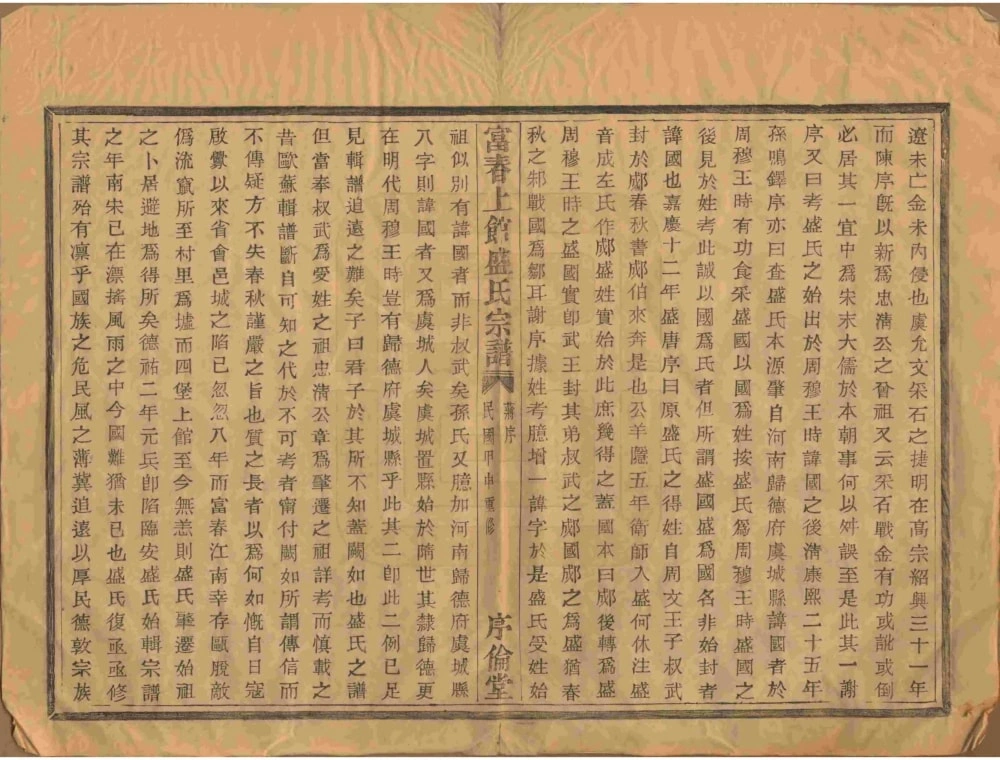 遼未亡金未內侵也虞允文采石之捷明在高宗紹興三十一年
而陳序旣以新爲忠淸公之曾祖又云采石戰金有功或訛或倒
必居其一宜中爲宋末大儒於本朝事何以舛誤至是此其一謝
序又曰考盛氏之始出於周穆王時諱國之後淸康熙二十五年
孫鳴鐸序亦曰查盛氏本源肇自河南歸德府虞城縣諱國者於
周穆王時有功食采盛國以國爲姓按盛氏爲周穆王時盛國之
後見於姓考此誠以國爲氏者但所謂盛國盛爲國名非始封者
諱國也嘉慶十二年盛唐序曰原盛氏之得姓自周文王子叔武
封於郕春秋書郕伯來奔是也公羊隱五年衛師入盛何休注盛
音成左氏作郕盛姓實始於此庶幾得之蓋國本曰郕後轉爲盛
周穆王時之盛國實卽武王封其弟叔武之郕國郕之爲盛猶春
秋之邾戰國爲鄒耳謝序據姓考臆增一諱字於是盛氏受姓始
富春上館盛氏宗譜
蔣序
民國甲申重修
序倫堂
祖似別有諱國者而非叔武矣孫氏又臆加河南歸德府虞城縣
八字則諱國者又爲虞城人矣虞城置縣始於隋世其隸歸德更
在明代周穆王時豈有歸德府虞城縣乎此其二卽此二例已足
見輯譜追遠之難矣子曰君子於其所不知蓋闕如也盛氏之譜
但當奉叔武爲受姓之祖忠淸公章爲肇遷之祖詳考而愼載之
昔歐蘇輯譜斷自可知之代於不可考者甯付闕如所謂傳信而
不傳疑方不失春秋謹嚴之旨也質之長者以爲何如慨自日寇
啟釁以來省會邑城之陷已忽忽八年而富春江南幸存甌脫敵
僞流竄所至村里爲墟而四堡上館至今無恙則盛氏肇遷始祖
之卜居避地爲得所矣德祐二年元兵卽陷臨安盛氏始輯宗譜
之年南宋已在漂搖風雨之中今國難猶未已也盛氏復亟亟修
其宗譜殆有凜乎國族之危民風之薄冀追遠以厚民德敦宗族